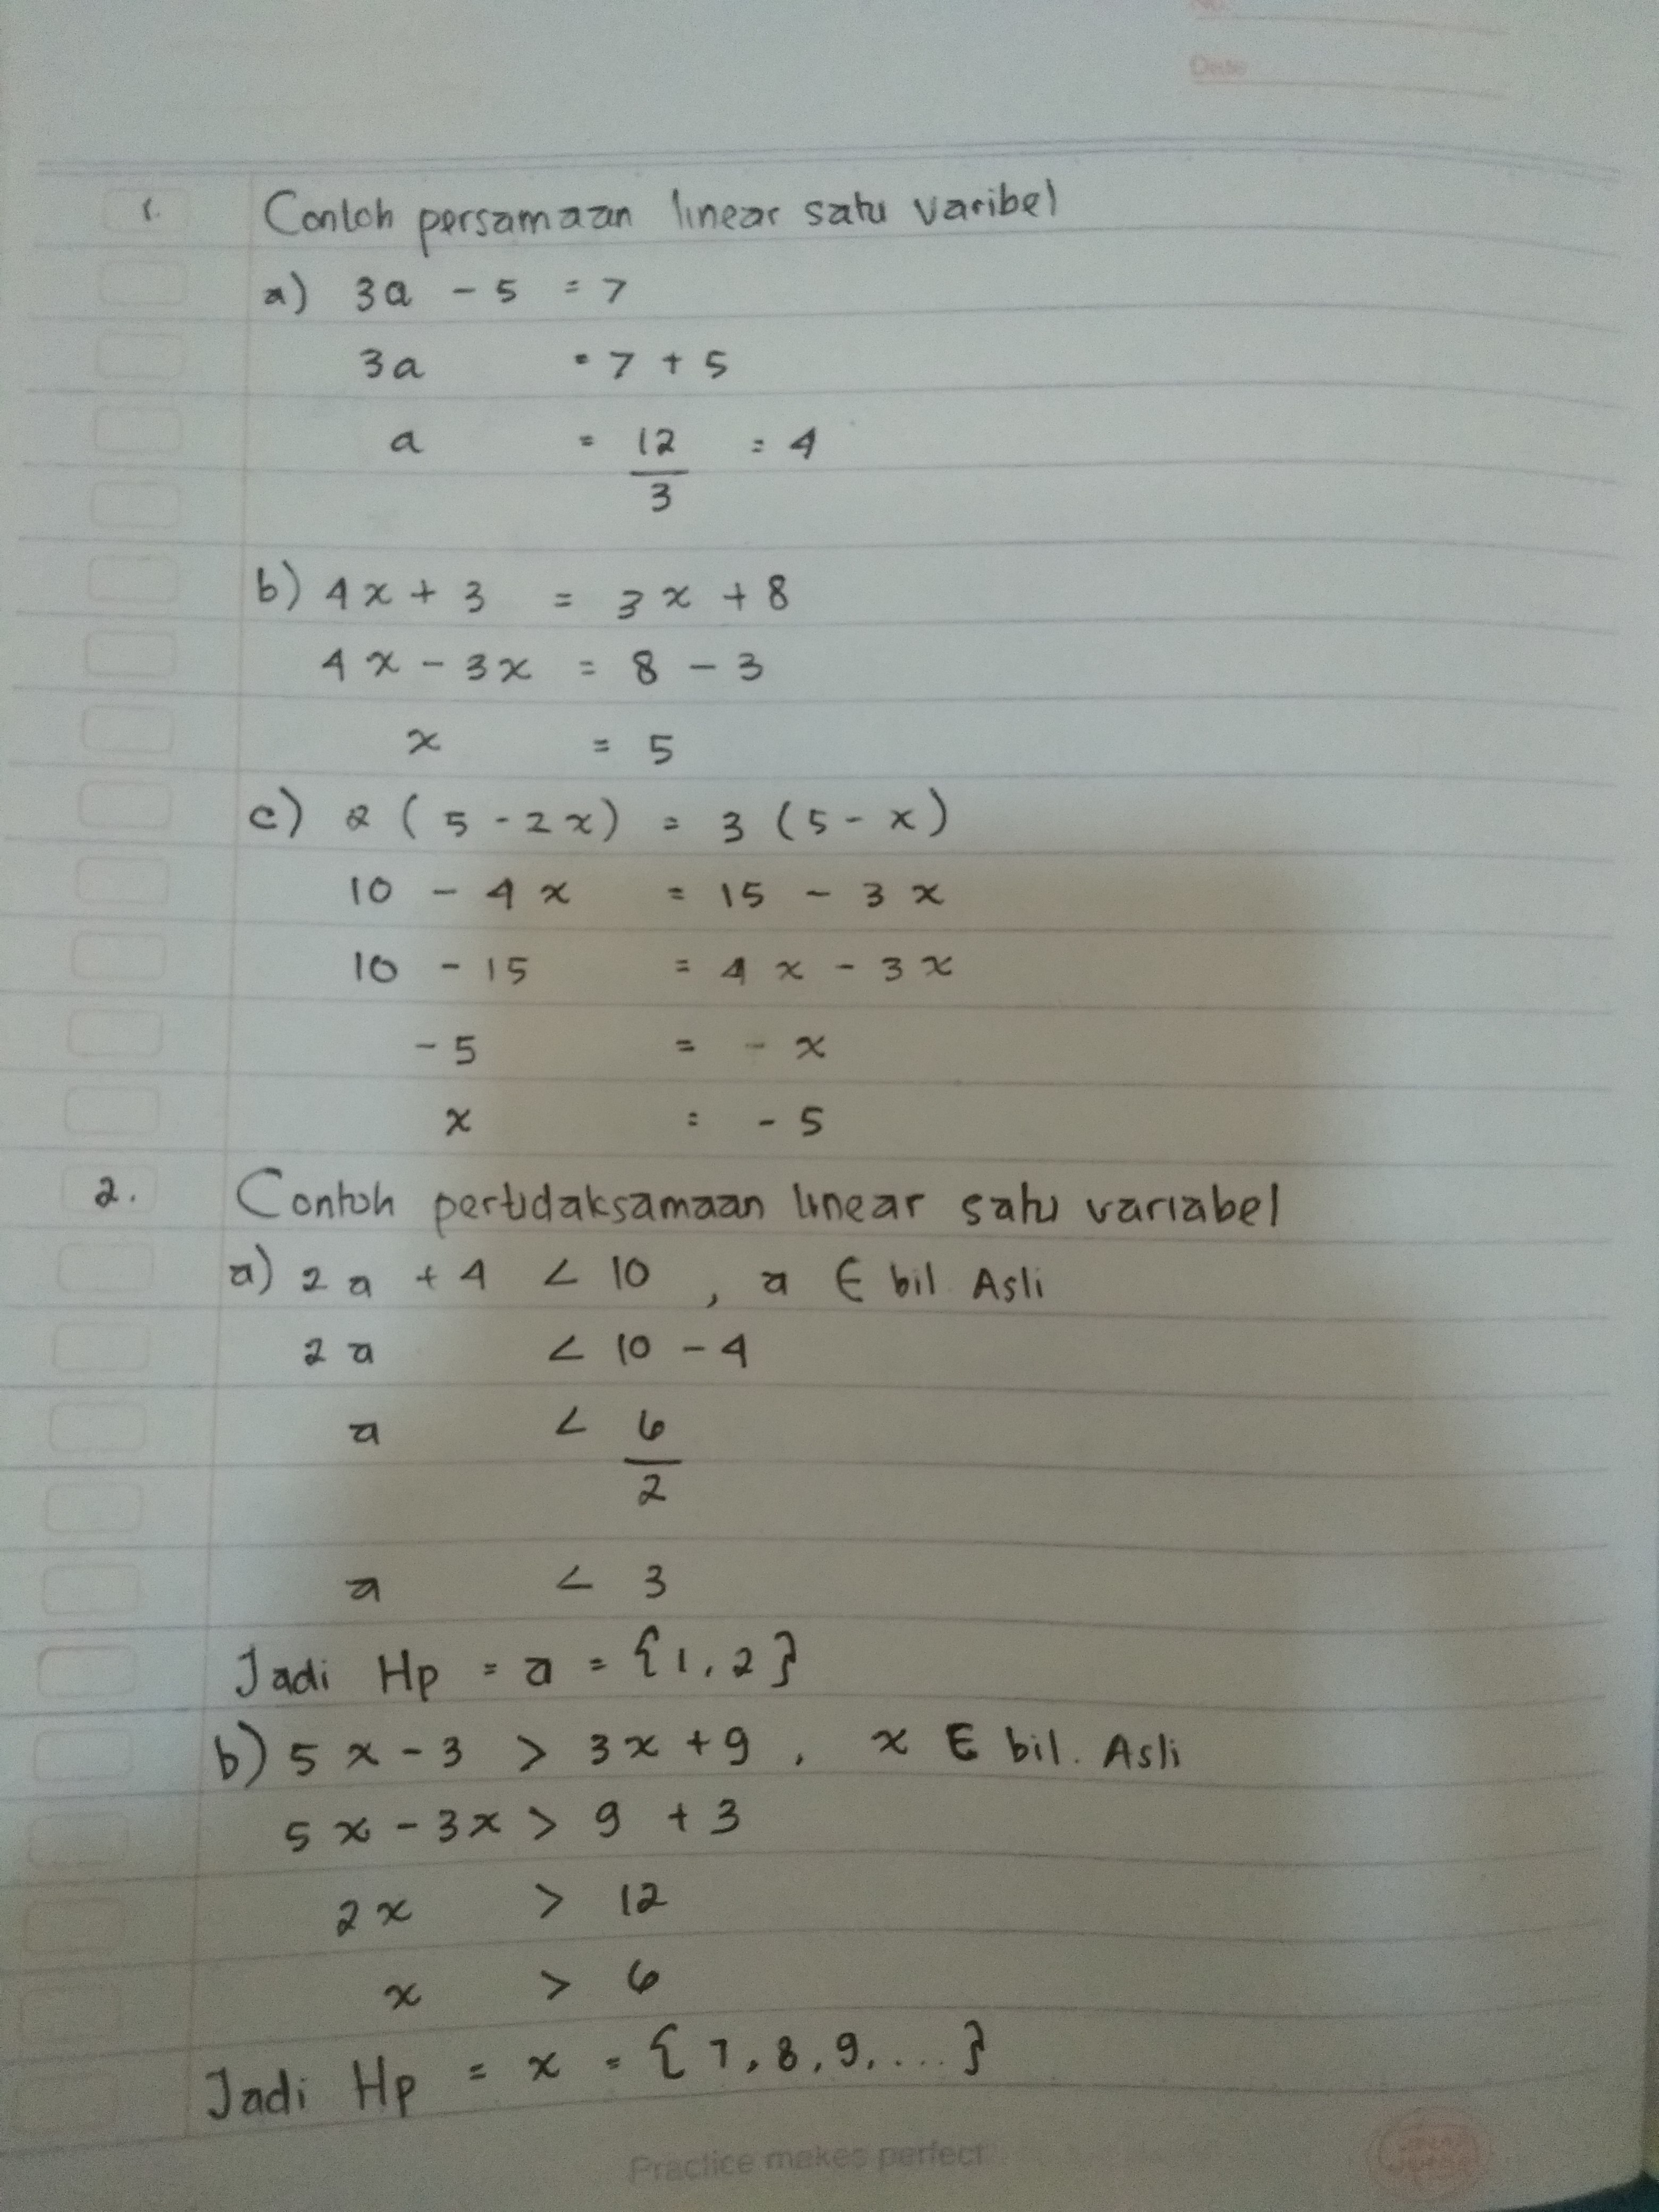 No.
Date
1. Contoh persamaan linear satu varibel
a) 3a - 5 = 7
3a = 7 + 5
a = 12/3 = 4
b) 4x + 3 = 3x + 8
4x - 3x = 8 - 3
x = 5
c) 2 ( 5 - 2x ) = 3 ( 5 - x )
10 - 4x = 15 - 3x
10 - 15 = 4x - 3x
- 5 = - x
x = - 5
2. Contoh pertidaksamaan linear satu variabel
a) 2a + 4 < 10 , a ∈ bil Asli
2a < 10 - 4
a < 6/2
a < 3
Jadi Hp = a = {1, 2}
b) 5x - 3 > 3x + 9 , x ∈ bil. Asli
5x - 3x > 9 + 3
2x > 12
x > 6
Jadi Hp = x = {7, 8, 9, ....}
Practice makes perfect